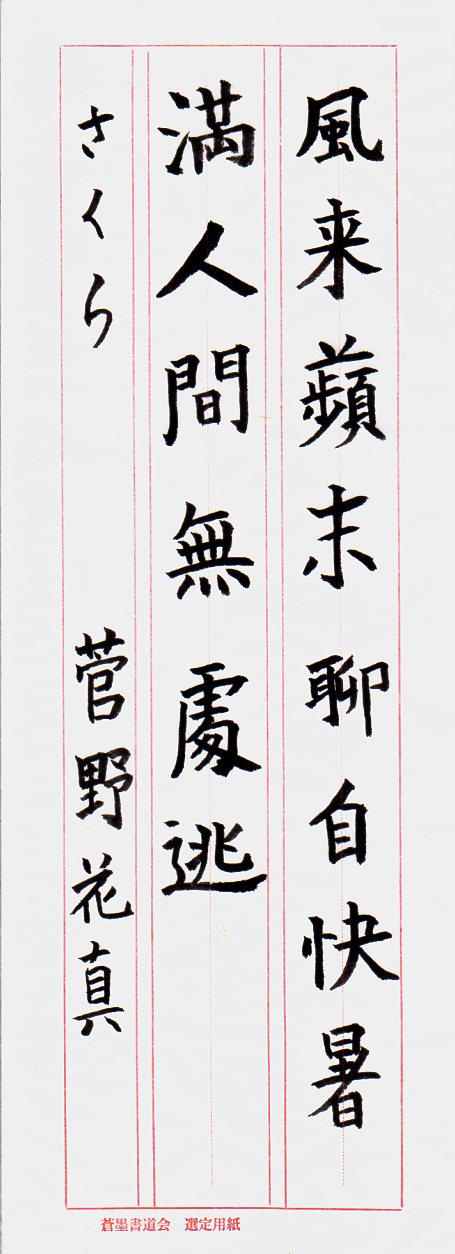 風来蘋末聊自快暑
満人間無處逃
さくら 菅野花真
蒼墨書道会 選定用紙